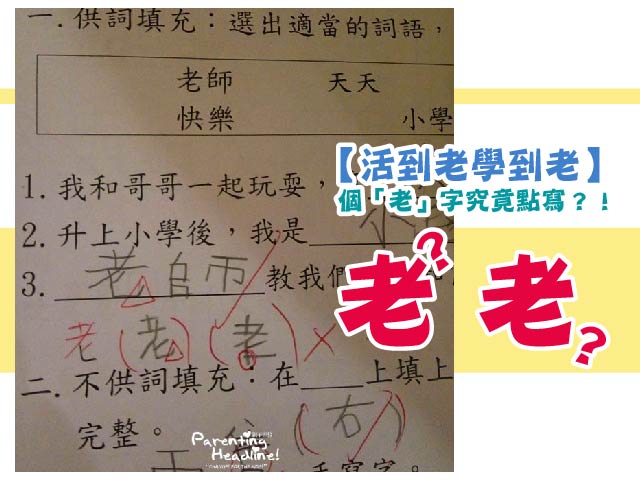 一.供詞填充：選出適當的詞語，
老師 天天
快樂 小學
1.我和哥哥一起玩耍，
2.升上小學後，我是____小
3.老師教我們
老(老)(老)×
二.不供詞填充：在____上填上
完整。 (右)
【活到老學到老】
個「老」字究竟點寫？！
老? 老?
Parenting
Headline!